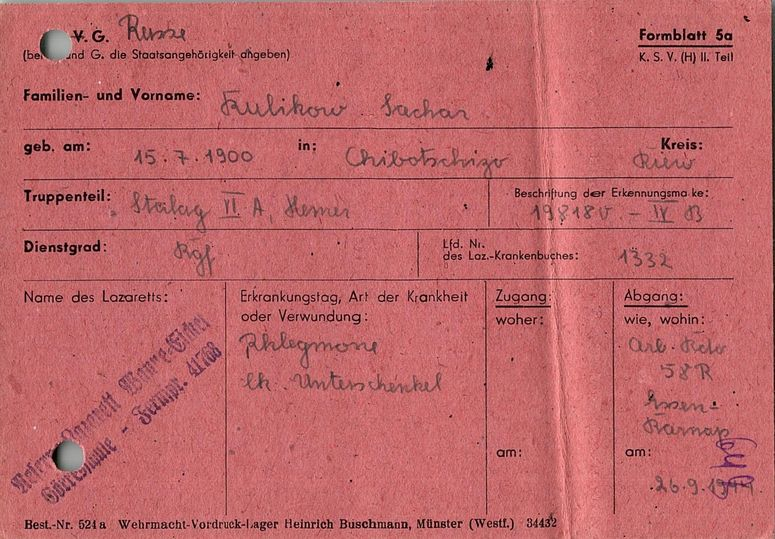 V. G. Russe
Formblatt 5a
(bei und G. die Staatsangehörigkeit angeben)
K. S. V. (H) II. Teil
Familien- und Vorname: Kulikow Sachar
geb. am: 15.7.1900 in: Chibotschizo Kreis: Kiew
Truppenteil: Stalag VI A, Hemer
Beschriftung der Erkennungsmarke:
198180 - IV B
Dienstgrad: Rgf
Lfd. Nr.
des Laz.-Krankenbuches: 1332
Name des Lazaretts:
Erkrankungstag, Art der Krankheit
oder Verwundung:
Phlegmone
lk. Unterschenkel
Zugang:
woher:
am:
Abgang:
wie, wohin:
Arb. Kdo
58R
Essen-
Karnap
am:
26.9.1944
Lazarett Wanne-Eickel
- Fernspr. 41768
Best.-Nr. 521a Wehrmacht-Vordruck-Lager Heinrich Buschmann, Münster (Westf.) 34432